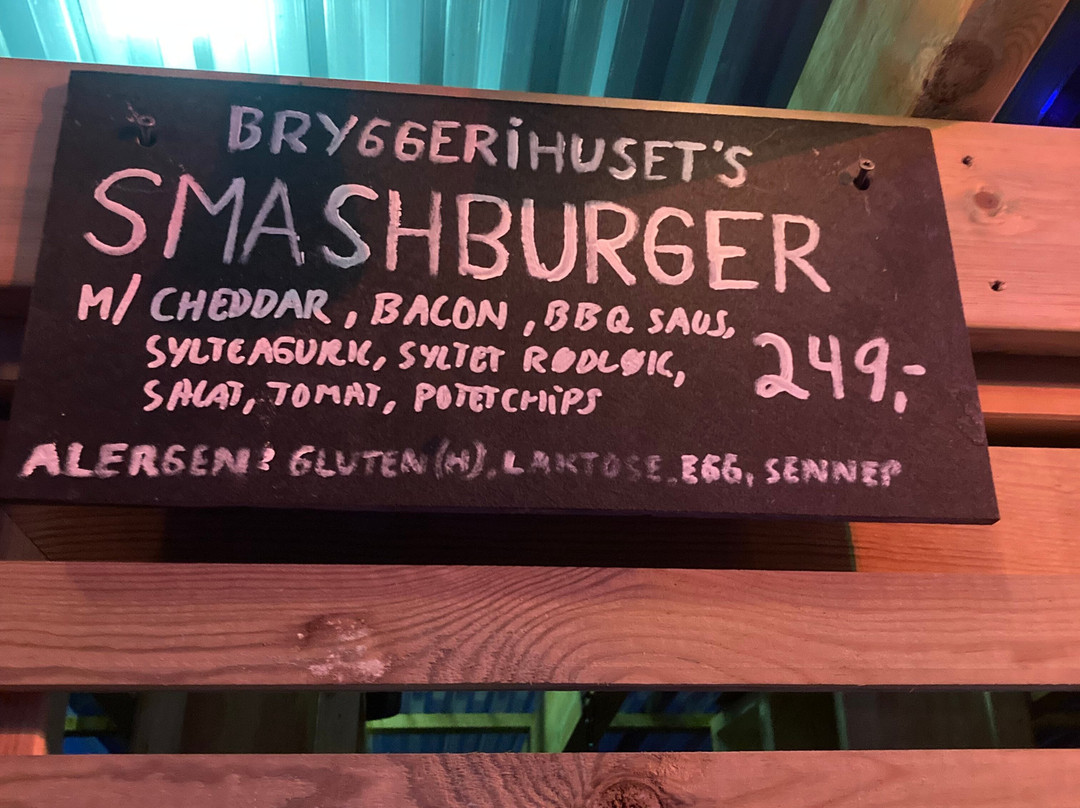 BRYGGERiHUSET'S
SMASHBURGER
M/ CHEDDAR, BACON, BBQ SAUS,
SYLTEAGURK, SYLTET RØDLØK,
SALAT, TOMAT, POTETCHiPS
249,-
ALERGEN: GLUTEN(H), LAKTOSE, EGG, SENNEP